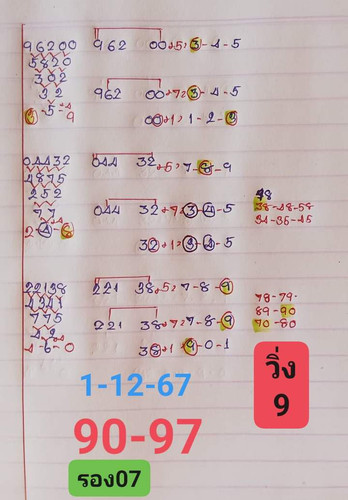 96200   962   00+5, 3-4-5
5820
302   962   00+7, 3-4-5
32
5-9   00+1, 1-2-3
04432   044   32+5, 7-8-9
4875
252   044   32+7, 3-4-5
77
2-4-6   32+1, 3-4-5
48
38-48-58
34-35-45
22138   221   38+5, 7-8-9
4341
775   221   38+7, 7-8-9
42
4-6-0   38+1, 9-0-1
78-79-
89-90
70-80
วิ่ง
9
1-12-67
90-97
รอง07